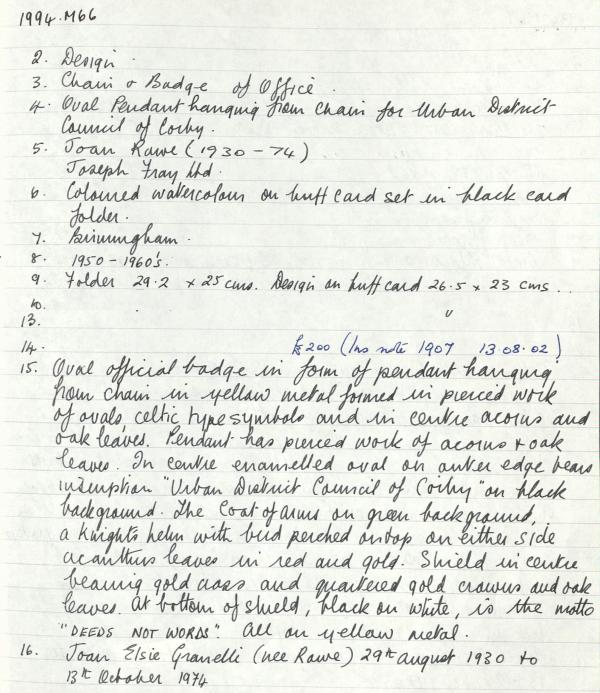 1994.M66
2. Design.
3. Chain & Badge of Office.
4. Oval Pendant hanging from chain for Urban District
Council of Corby.
5. Joan Rawe (1930-74)
Joseph Fray Ltd.
6. Coloured watercolour on buff card set in black card
folder.
7. Birmingham.
8. 1950-1960's.
9. Folder 29.2 x 25 cms. Design on buff card 26.5 x 23 cms..
10. . "
13.
14. £200 (Ins note 1907 13.08.02)
15. Oval official badge in form of pendant hanging
from chain in yellow metal formed in pierced work
of ovals, celtic type symbols and in centre acorns and
oak leaves. Pendant has pierced work of acorns & oak
leaves. In centre enamelled oval on outer edge bears
inscription "Urban District Council of Corby" on black
background. The Coat of arms on green background,
a Knights helm with bird perched on top on either side
acanthus leaves in red and gold. Shield in centre
bearing gold cross and quartered gold crowns and oak
leaves. At bottom of shield, black on white, is the motto
"DEEDS NOT WORDS". All on yellow metal.
16. Joan Elsie Granelli (nee Rawe) 29th August 1930 to
13th October 1974